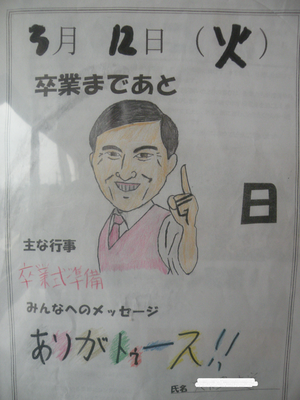 3月 12日 (火)
卒業まであと
日
主な行事
卒業式準備
みんなへのメッセージ
ありがトゥース!!
氏名